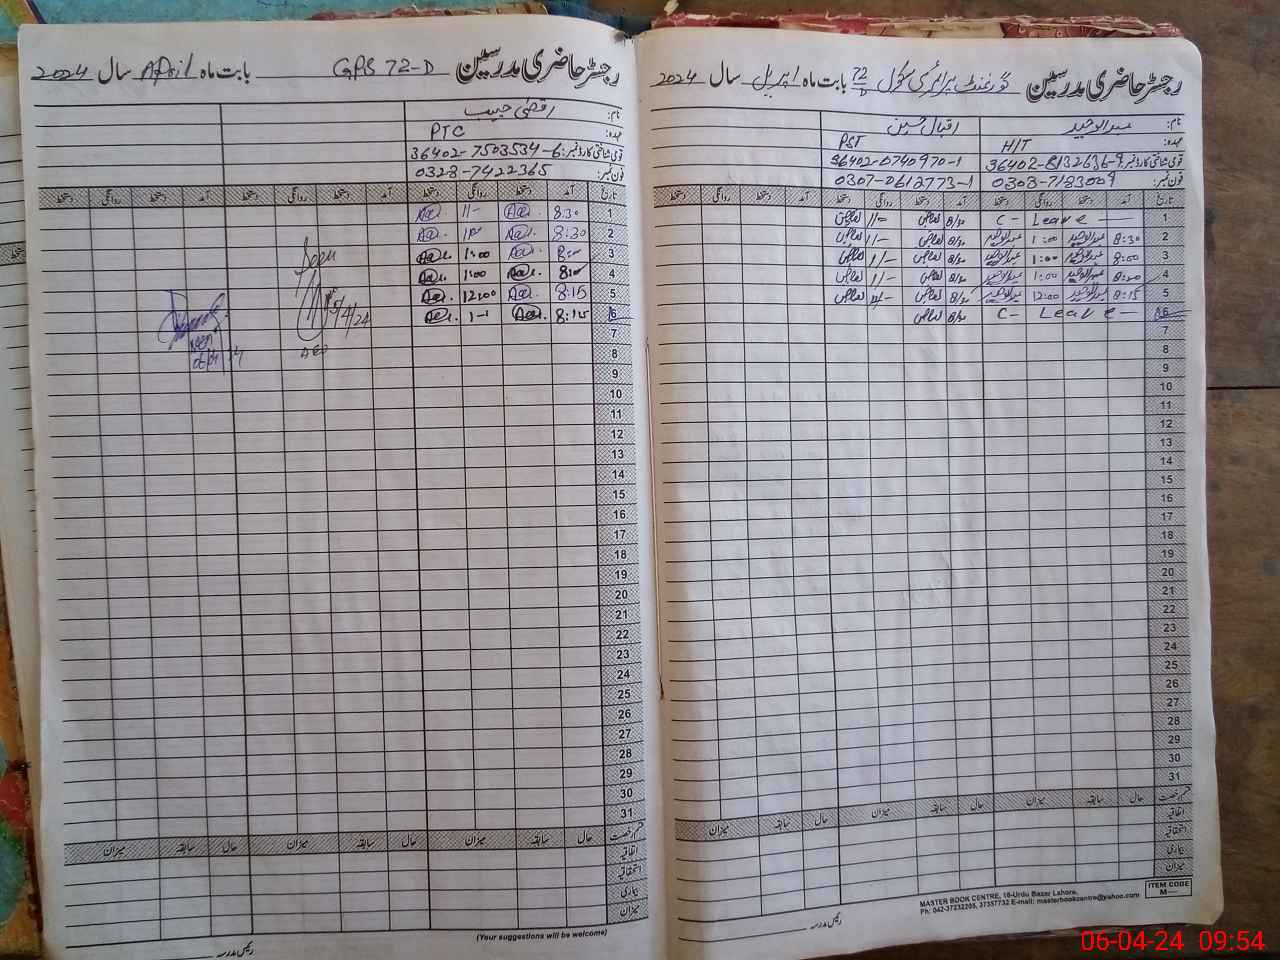 رجسٹر حاضری مدرسین گورنمنٹ پرائمری سکول 72/D بابت ماہ اپریل سال 2024
نام: عبدالوحید اقبال حسین
عہدہ: HIT PST
قومی شناختی کارڈ نمبر: 36402-8132636-9 36402-0740970-1
فون نمبر: 0303-7183009 0307-0612773-1
تاریخ آمد دستخط روانگی دستخط آمد دستخط روانگی دستخط آمد دستخط روانگی دستخط
1 C- Leave
2 8:30 عبدالوحید 1:00 عبدالوحید
3 8:00 عبدالوحید 1:00 عبدالوحید
4 8:00 عبدالوحید 1:00 عبدالوحید
5 8:15 عبدالوحید 12:00 عبدالوحید
6 C- Leave
7
8
9
10
11
12
13
14
15
16
17
18
19
20
21
22
23
24
25
26
27
28
29
30
31
قسم رخصت حال سابقہ میزان حال سابقہ میزان حال سابقہ میزان
اتفاقیہ
استحقاقیہ
بیماری
میزان
رئیس مدرسہ
MASTER BOOK CENTRE, 16-Urdu Bazar Lahore.
Ph: 042-37232205, 37357732 E-mail: masterbookcentre@yahoo.com
ITEM CODE
M—
رجسٹر حاضری مدرسین GPS 72-D بابت ماہ April سال 2024
نام:
عہدہ: PTC
قومی شناختی کارڈ نمبر: 36402-7503534-6
فون نمبر: 0328-7422365
تاریخ آمد دستخط روانگی دستخط آمد دستخط روانگی دستخط آمد دستخط روانگی دستخط
1 8:30 11-
2 8:30
3 8:00 1:00
4 8:00 1:00
5 8:15 12:00
6 8:15 1-1
7
8
9
10
11
12
13
14
15
16
17
18
19
20
21
22
23
24
25
26
27
28
29
30
31
5/4/24
AEO
قسم رخصت حال سابقہ میزان حال سابقہ میزان حال سابقہ میزان
اتفاقیہ
استحقاقیہ
بیماری
میزان
(Your suggestions will be welcome)
رئیس مدرسہ
06-04-24 09:54